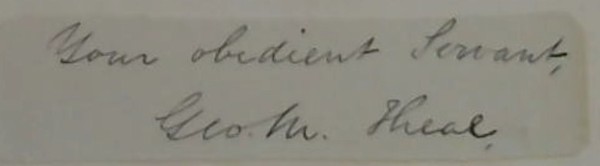 Your obedient Servant,
Geo. M. Theal.